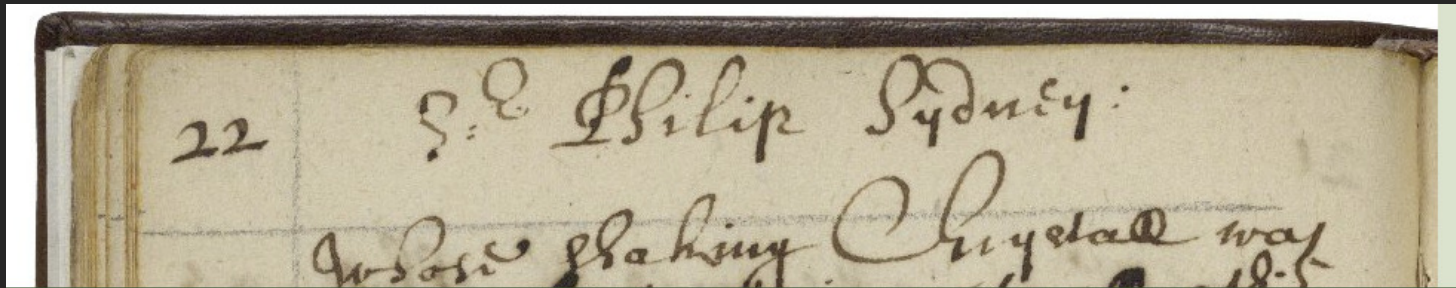 22 Sr: Philip Sydney:
Whose shaking Chrystall was